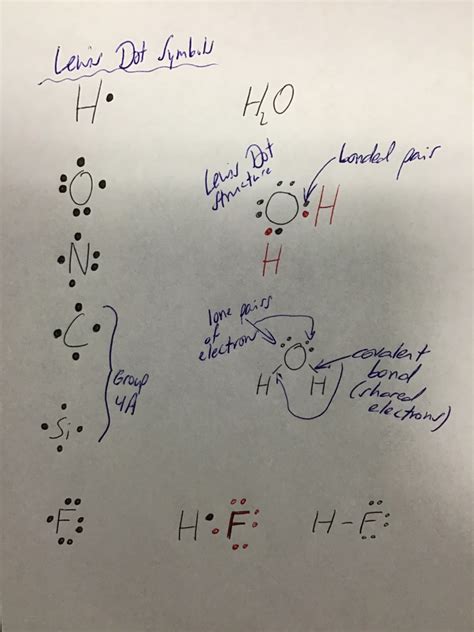 Lewis Dot Symbols
H
H₂O
O
Lewis Dot
Structure
bonded pair
O H
H
N
C
lone pairs
of
electrons
O
H H
covalent
bond
(shared
electrons)
Group
4A
Si
F
H F
H-F